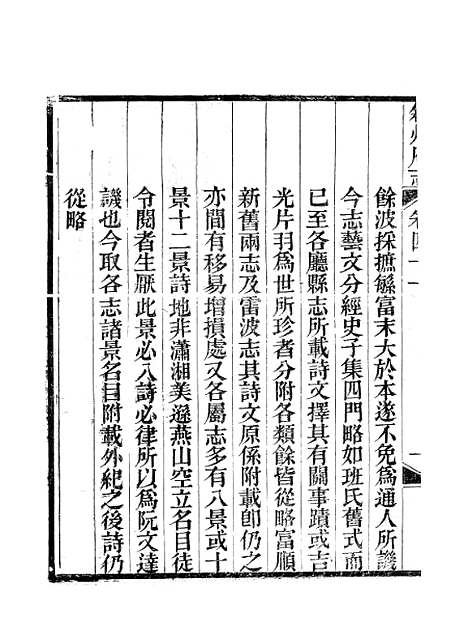 餘波採摭緐富末大於本遂不免爲通人所譏
今志藝文分經史子集四門略如班氏舊式而
已至各廳縣志所載詩文擇其有關事蹟或吉
光片羽爲世所珍者分附各類餘皆從略富順
新舊兩志及雷波志其詩文原係附載卽仍之
亦間有移易增損處又各屬志多有八景或十
景十二景詩地非瀟湘美遜燕山空立名目徒
令閱者生厭此景必八詩必律所以爲阮文達
譏也今取各志諸景名目附載外紀之後詩仍
從略